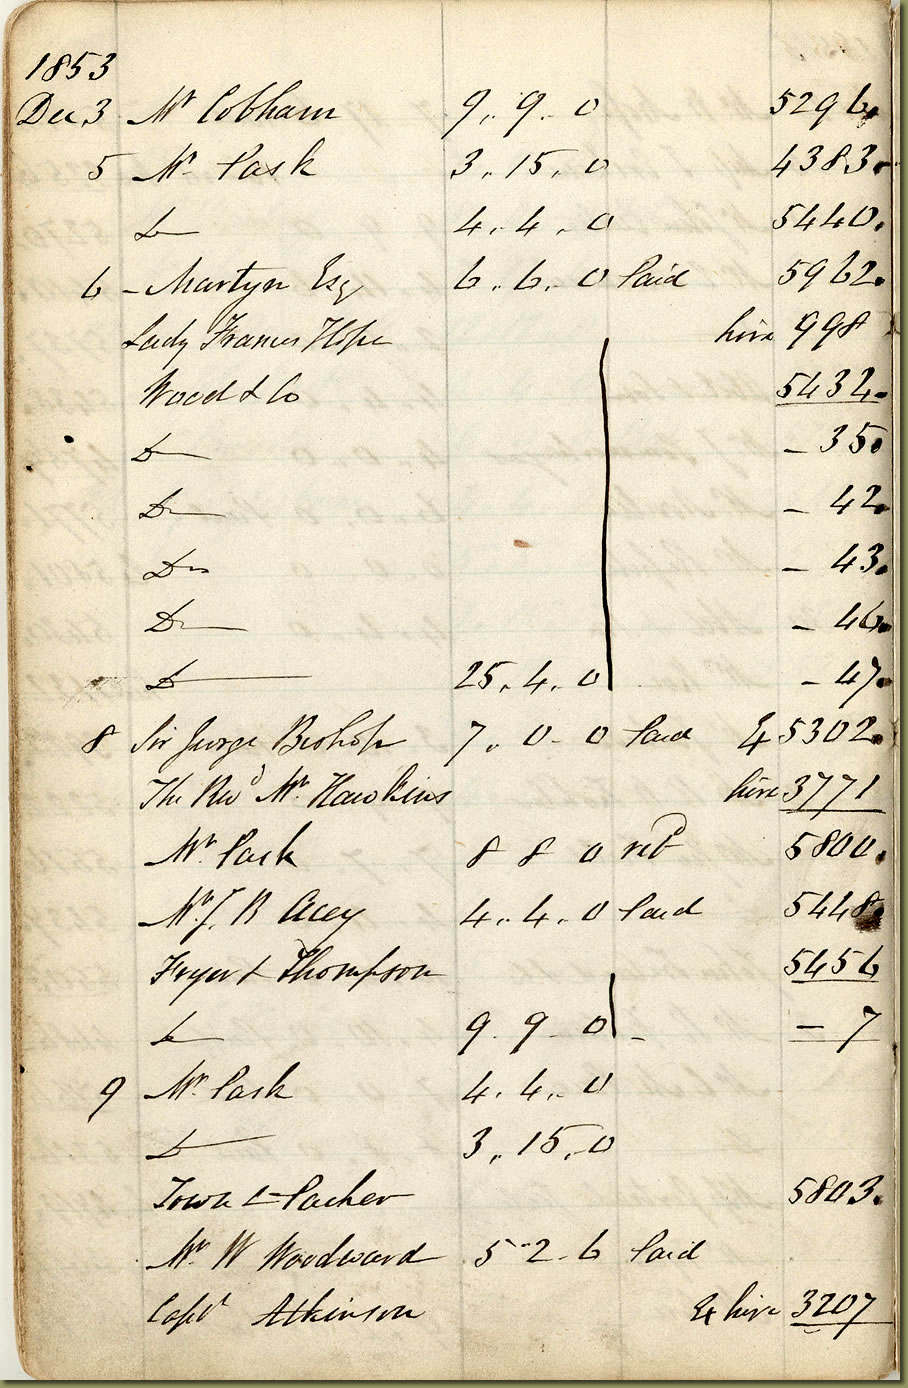 1853
Dec 3 Mr Cobham 9 . 9 . 0 5296.
5 Mr Pask 3 . 15 . 0 4383.
Do 4 . 4 . 0 5440.
6 – Martyn Esq 6 . 6 . 0 Paid 5962.
Lady Frances Hope hire 998
Wood & Co 5432.
Do – 35.
Do – 42.
Do – 43.
Do – 46.
Do 25 . 4 . 0 – 47.
8 Sir George Bishop 7 . 0 - 0 Paid 5302.
The Revd Mr. Hawkins hire 3771
Mr. Pask 8 8 0 5800.
Mr. J. B Acey 4 . 4 . 0 Paid 5448.
Fryer & Thompson 5456
Do 9 . 9 - 0 – 7
9 Mr. Pask 4 . 4 . 0
Do 3 . 15 . 0
Town & Packer 5803.
Mr. W Woodward 5 - 2 - 6 Paid
Capt Atkinson hire 3207